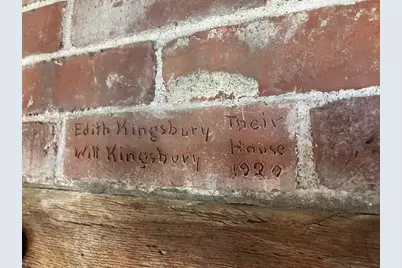 Edith Kingsbury Their
Will Kingsbury House
1929